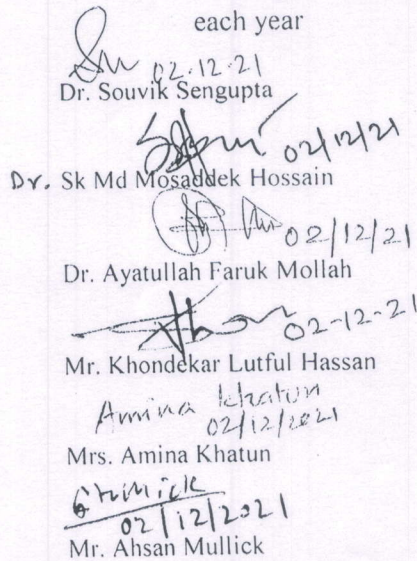 each year
02.12.21
Dr. Souvik Sengupta
02/12/21
Dr. Sk Md Mosaddek Hossain
02/12/21
Dr. Ayatullah Faruk Mollah
02-12-21
Mr. Khondekar Lutful Hassan
Amina Khatun
02/12/2021
Mrs. Amina Khatun
02/12/2021
Mr. Ahsan Mullick